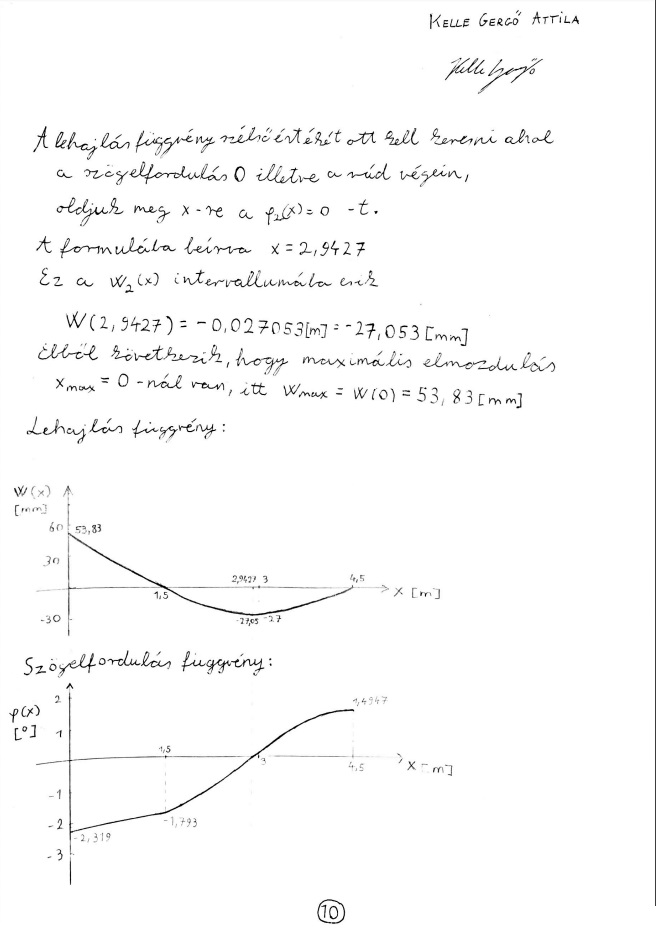 KELLE GERGŐ ATTILA
Kelle Gergő
A lehajlás függvény szélsőértékét ott kell keresni ahol
a szögelfordulás 0 illetve a rúd végein,
oldjuk meg x-re a φ₂(x)=0 -t.
A formulába beírva x=2,9427
Ez a W₂(x) intervallumába esik
W(2,9427)=-0,027053[m]=-27,053[mm]
Ebből következik, hogy maximális elmozdulás
x_max = 0 -nál van, itt W_max = W(0) = 53,83[mm]
Lehajlás függvény:
W(x)
[mm]
60
53,83
30
2,9427 3
4,5
1,5
X [m]
-30
-27,05 -27
Szögelfordulás függvény:
φ(x)
[°]
2
1,4947
1
1,5
3
4,5
X [m]
-1
-2
-1,793
-2,319
-3
10